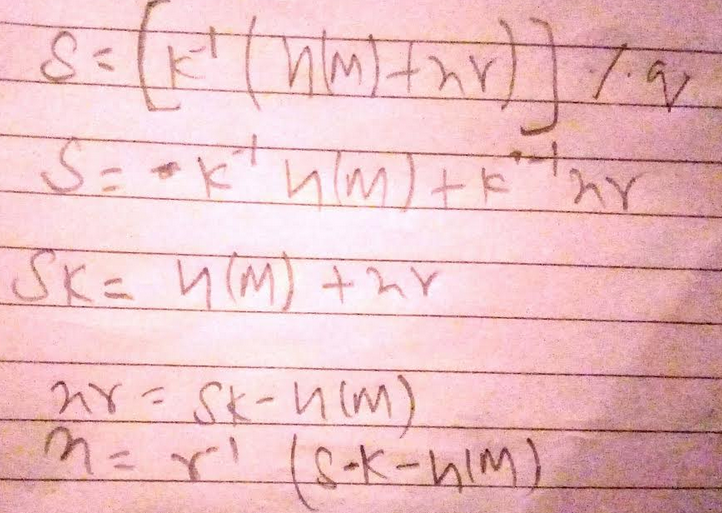 S = [k⁻¹ (H(M) + xr)] % q
S = k⁻¹ H(M) + k⁻¹ xr
SK = H(M) + xr
xr = SK - H(M)
x = r⁻¹ (S-K - H(M))